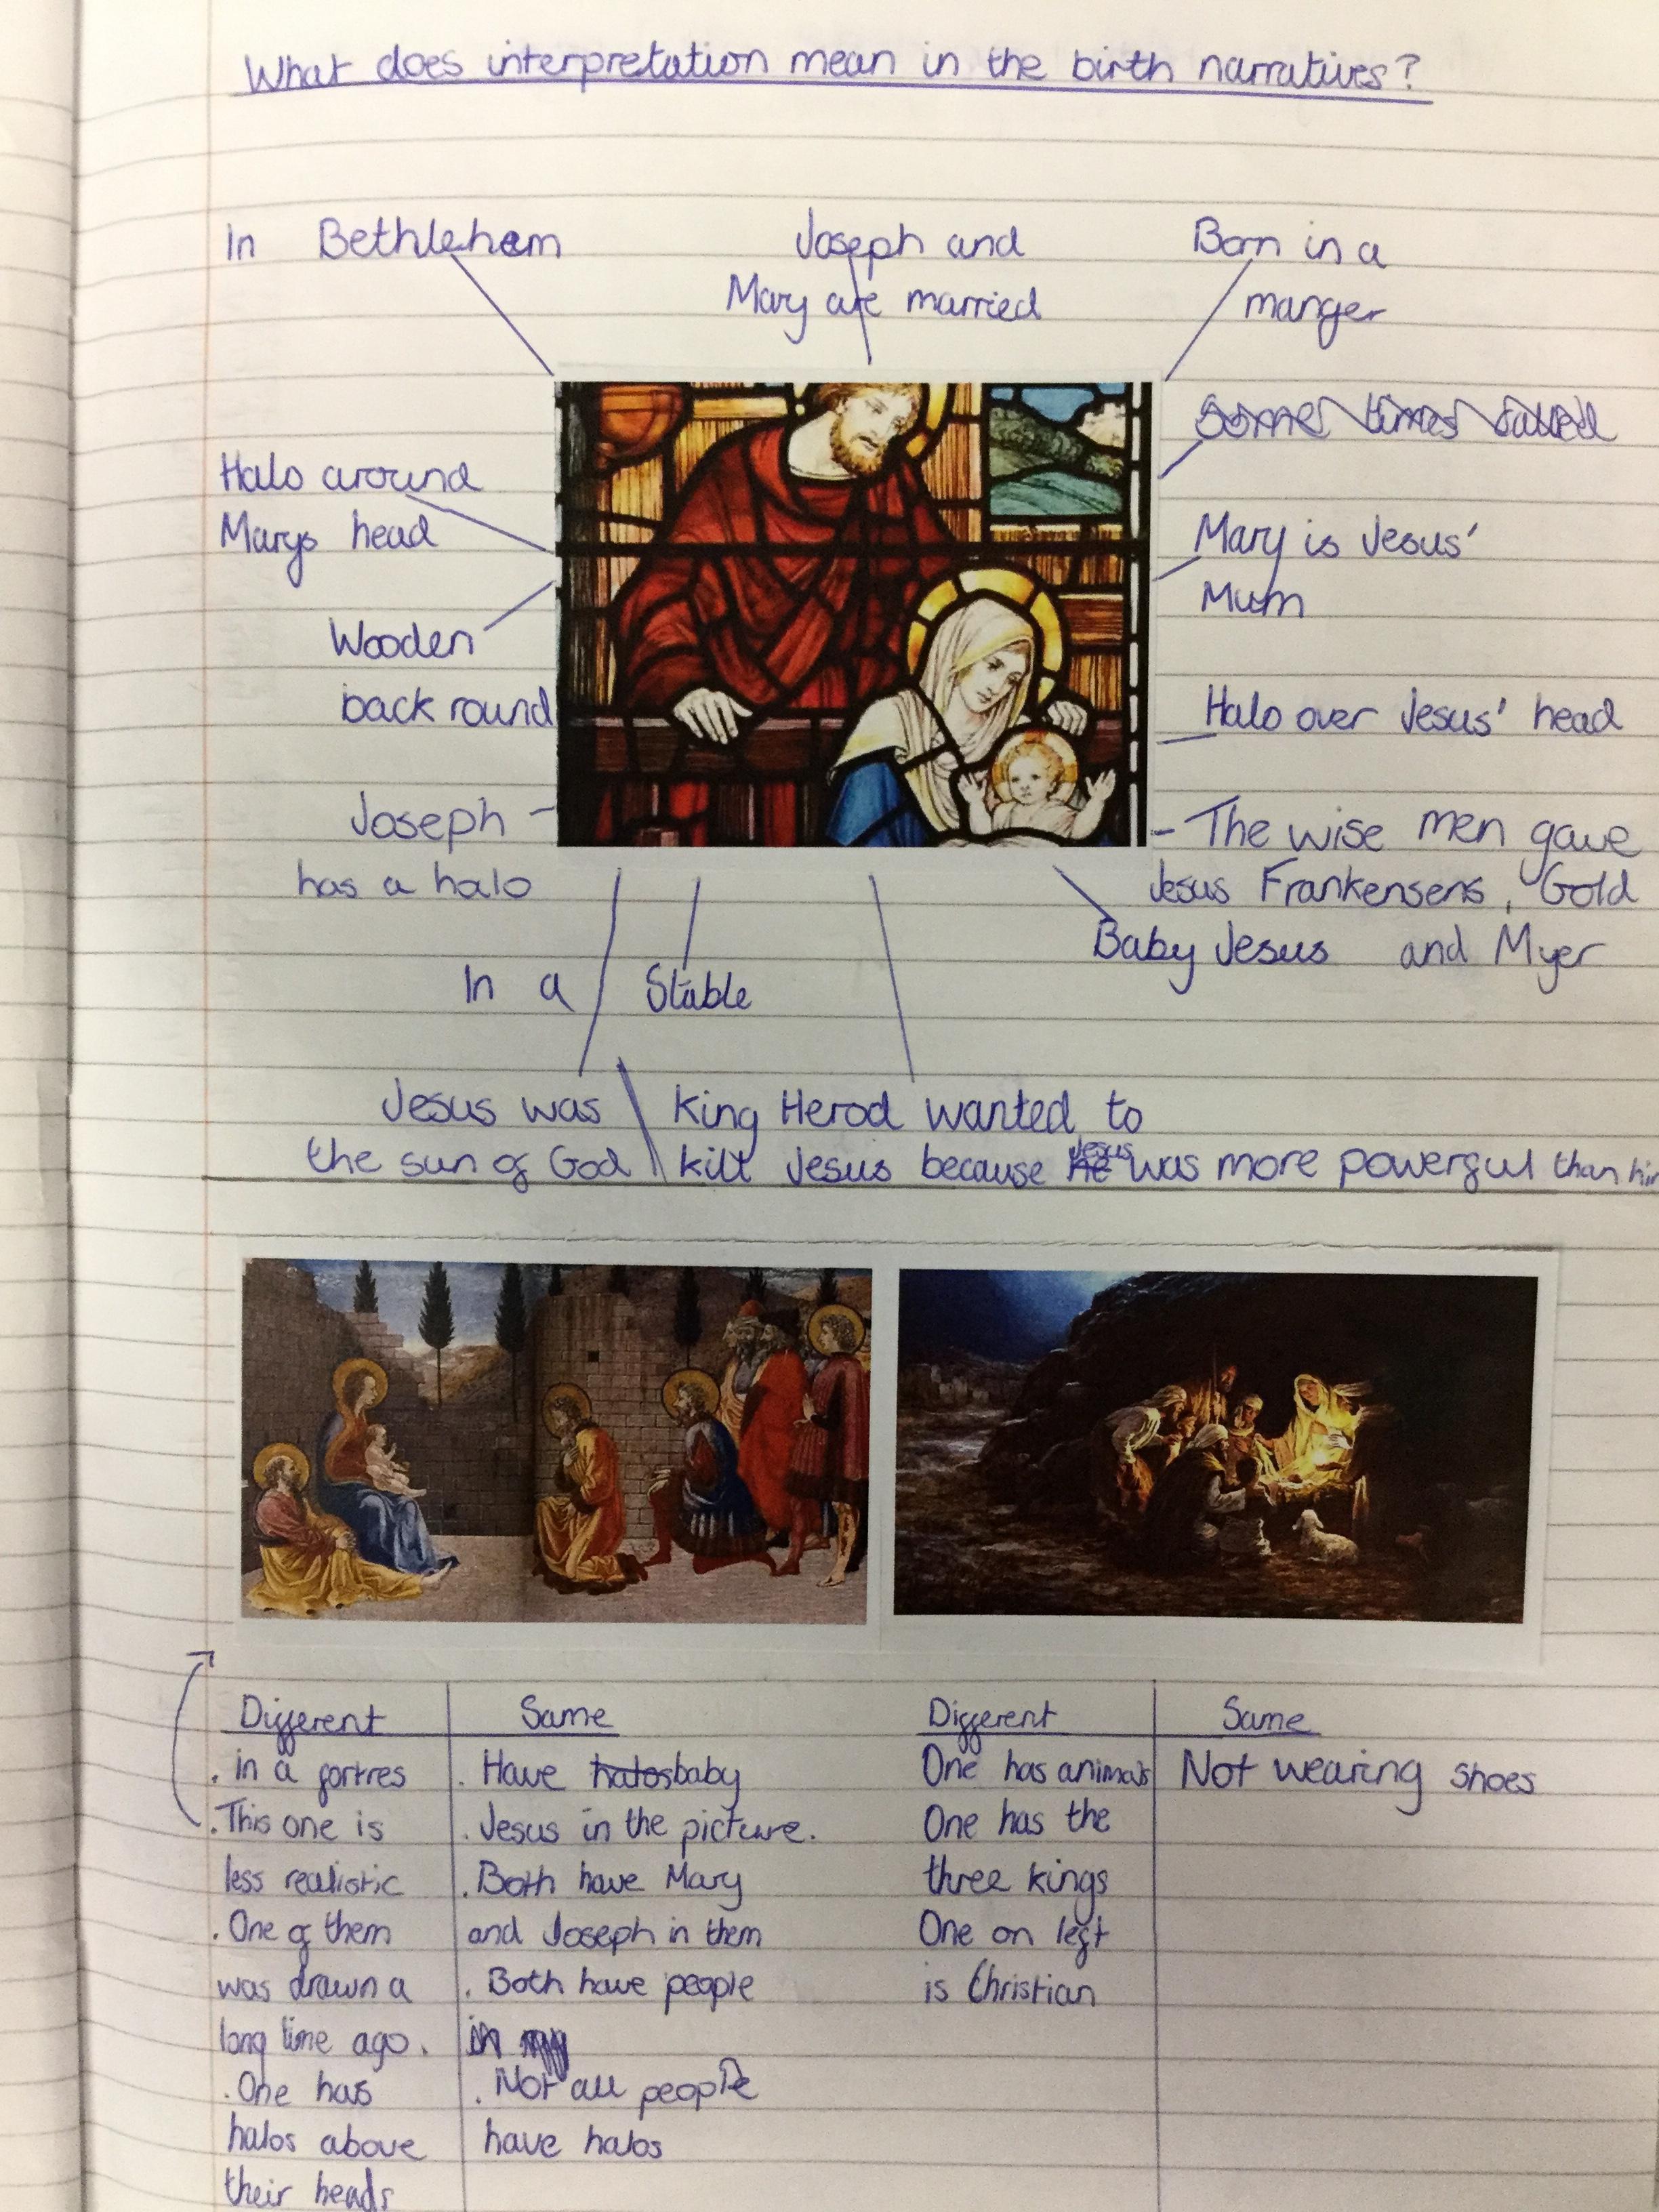 What does interpretation mean in the birth narratives?
In Bethlehem
Joseph and
Mary are married
Born in a
manger
Some times called
Halo around
Marys head
Mary is Jesus'
Mum
Wooden
back round
Halo over Jesus' head
Joseph
has a halo
- The wise men gave
Jesus Frankensens, Gold
and Myer
Baby Jesus
In a Stable
Jesus was
the sun of God
King Herod wanted to
kill Jesus because he Jesus was more powerful than him
Different
. in a fortres
. This one is
less realistic
. One of them
was drawn a
long time ago.
. One has
halos above
their heads
Same
. Have halos baby
. Jesus in the picture.
. Both have Mary
and Joseph in them
. Both have people
in
. Not all people
have halos
Different
One has animals
One has the
three kings
One on left
is Christian
Same
Not wearing shoes